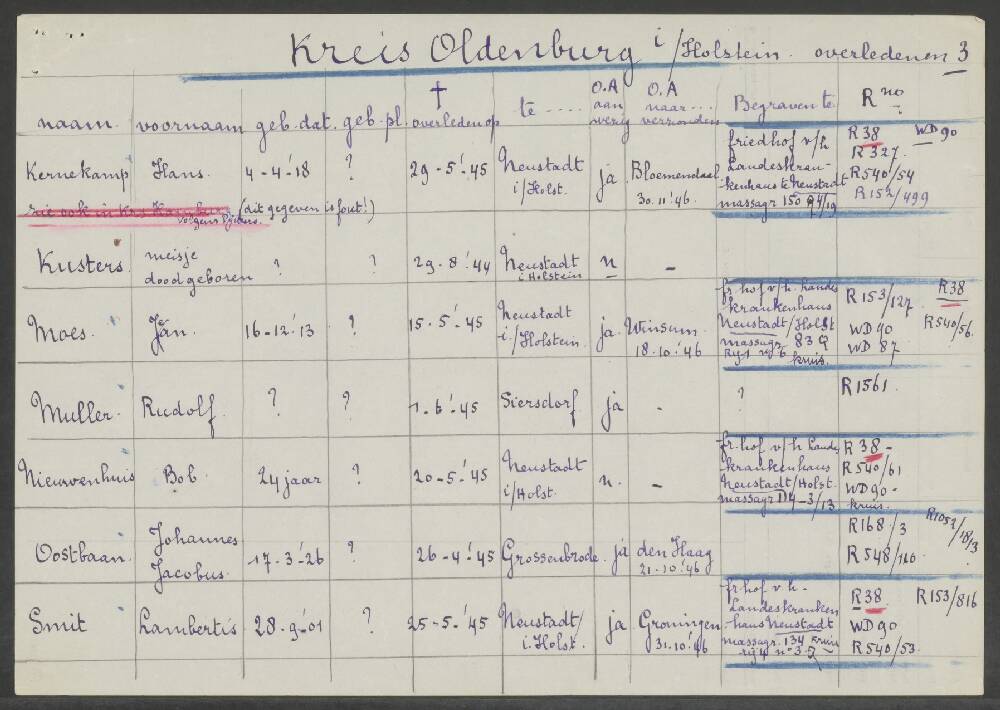 Kreis Oldenburg i/Holstein. overledenen 3
naam. voornaam geb. dat. geb. pl. † overleden op te .... O.A aanwezig O.A naar... verzonden Begraven te R no
Kernekamp Hans. 4-4-'18 ? 29-5-'45 Neustadt i/Holst. ja Bloemendaal 30.11.'46.
friedhof v/h
Landeskran-
kenhaus te Neustadt
massagr 150
R38 WD90
R327.
R540/54
R152/499
zie ook in Krs (dit gegeven is fout!)
volgens lijsten.
Kusters. meisje doodgeboren ? ? 29-8-'44 Neustadt i.Holstein n -
Moes. Jan. 16-12-'13 ? 15-5-'45 Neustadt i./Holstein. ja. Winsum. 18.10.'46
fr. hof v/h. Landes
krankenhaus
Neustadt/Holst
massagr 83
kruis.
R153/127. R38
WD90 R540/56.
WD 87
Muller. Rudolf. ? ? 1-6-'45 Siersdorf ja - ? R1561.
Nieuwenhuis Bob. 24 jaar ? 20-5-'45 Neustadt i/Holst. n. -
fr. hof v/h Landes
krankenhaus
Neustadt/Holst.
massagr 114-3/13
R38-
R540/61
WD90-
kruis.
Oostbaan. Johannes Jacobus. 17-3-'26 ? 26-4-'45 Grossenbrode. ja den Haag 21.10.'46
R168/3 R1052/18/13
R548/160
Smit Lambertis 28-9-'01 ? 25-5-'45 Neustadt/i.Holst. ja Groningen 31.10.'46
fr hof v.h.
Landeskranken
haus Neustadt
massagr. 134 kruis
rij 4 no 3.
R38. R153/816
WD90
R540/53.